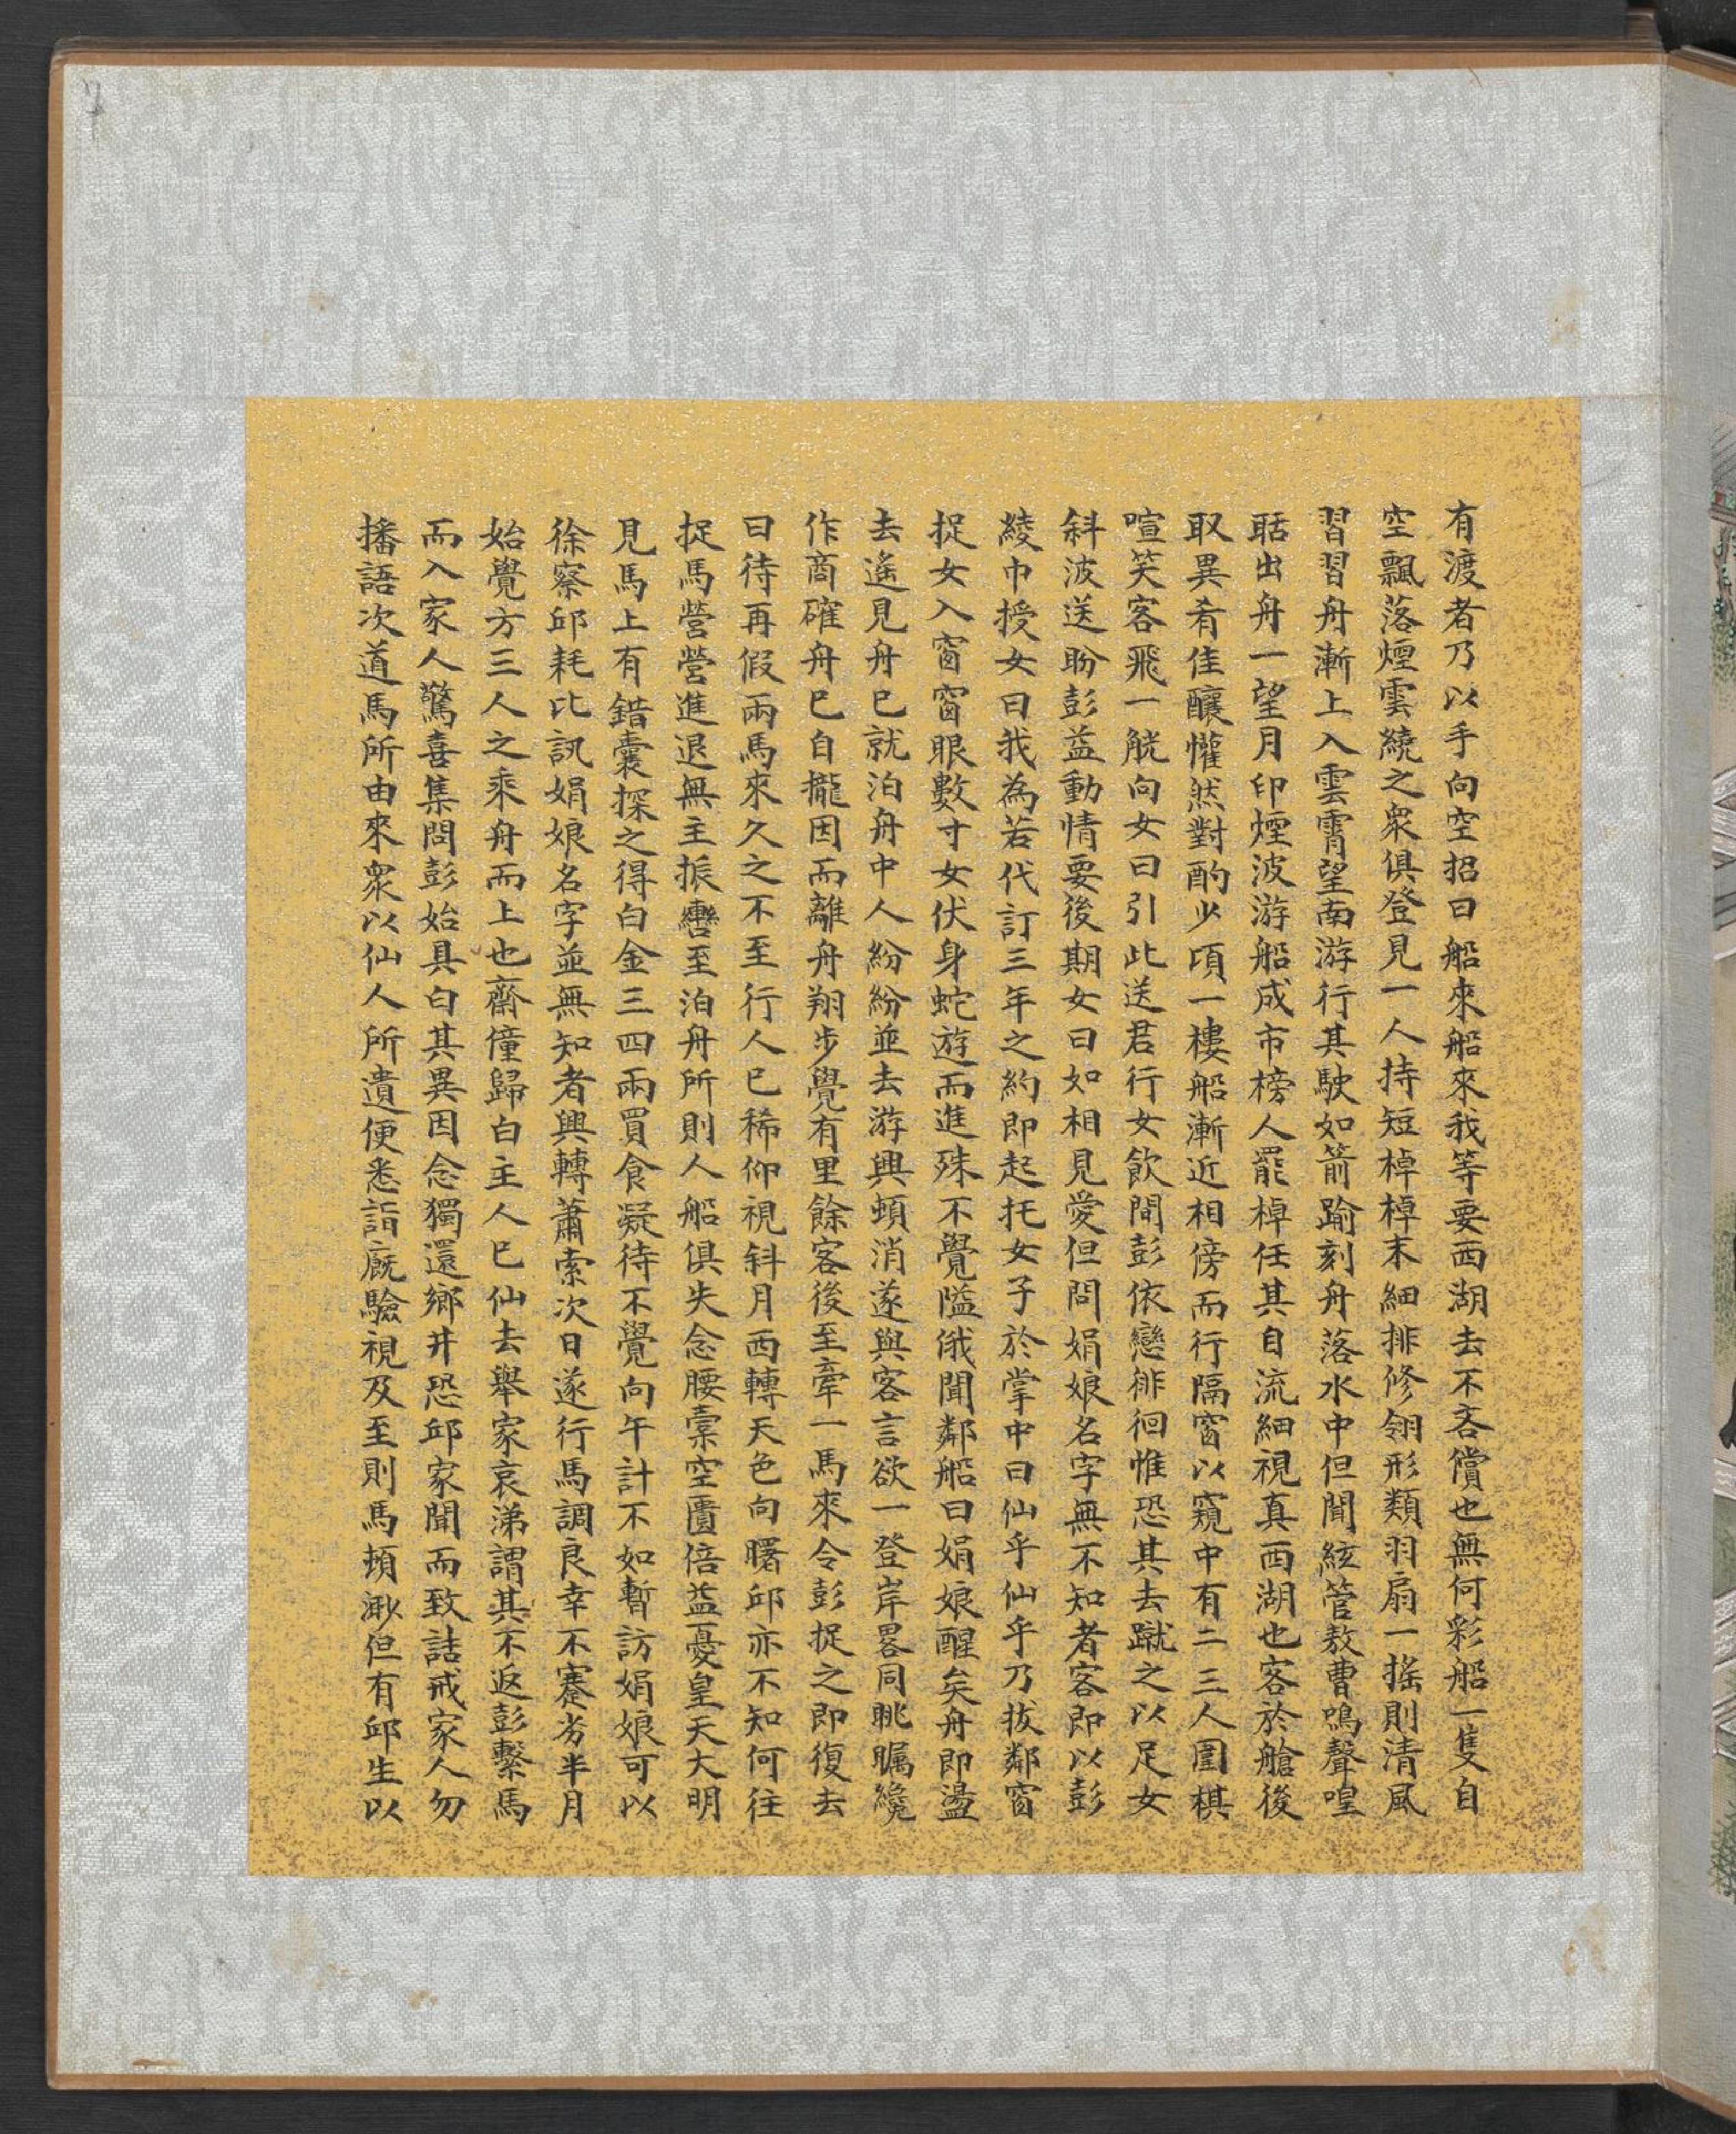 有渡者乃以手向空招曰船來船來我等要西湖去不吝償也無何彩船一隻自
空飄落煙雲繞之衆俱登見一人持短棹棹末細排修翎形類羽扇一搖則清風
習習舟漸上入雲霄望南游行其駛如箭踰刻舟落水中但聞絃管敖曹鳴聲喤
聒出舟一望月印煙波游船成市榜人罷棹任其自流細視真西湖也客於艙後
取異肴佳釀懽然對酌少頃一樓船漸近相傍而行隔窗以窺中有二三人圍棋
喧笑客飛一觥向女曰引此送君行女飲間彭依戀徘徊惟恐其去蹴之以足女
斜波送盼彭益動情要後期女曰如相見愛但問娟娘名字無不知者客即以彭
綾巾授女曰我為若代訂三年之約即起托女子於掌中曰仙乎仙乎乃拔鄰窗
捉女入窗窗眼數寸女伏身蛇游而進殊不覺隘俄聞鄰船曰娟娘醒矣舟即盪
去遙見舟已就泊舟中人紛紛並去游興頓消遂與客言欲一登岸畧同眺矚纔
作商確舟已自攏因而離舟翔步覺有里餘客後至牽一馬來令彭捉之即復去
曰待再假兩馬來久之不至行人已稀仰視斜月西轉天色向曙邱亦不知何往
捉馬營營進退無主振轡至泊舟所則人船俱失念腰橐空匱倍益憂皇天大明
見馬上有錯囊探之得白金三四兩買食凝待不覺向午計不如暫訪娟娘可以
徐察邱耗比訊娟娘名字並無知者興轉蕭索次日遂行馬調良幸不蹇劣半月
始覺方三人之乘舟而上也齋僮歸白主人已仙去舉家哀涕謂其不返彭繫馬
而入家人驚喜集問彭始具白其異因念獨還鄉井恐邱家聞而致詰戒家人勿
播語次道馬所由來衆以仙人所遺便悉詣廐驗視及至則馬頓渺但有邱生以